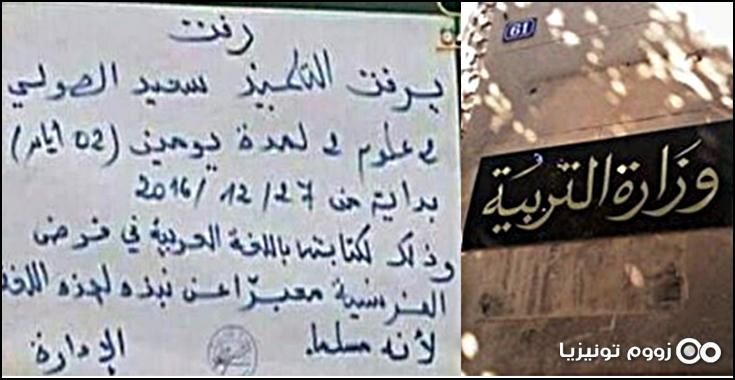 رفت
يرفت التلميذ سعيد الصولي
3 علوم 3 لمدة يومين (02 أيام)
بداية من 27/12/2016
وذلك لكتابته باللغة العربية في فرض
الفرنسية معبرا عن نبذه لهذه اللغة
لأنه مسلما.
الإدارة
61
وزارة التربية
زووم تونيزيا